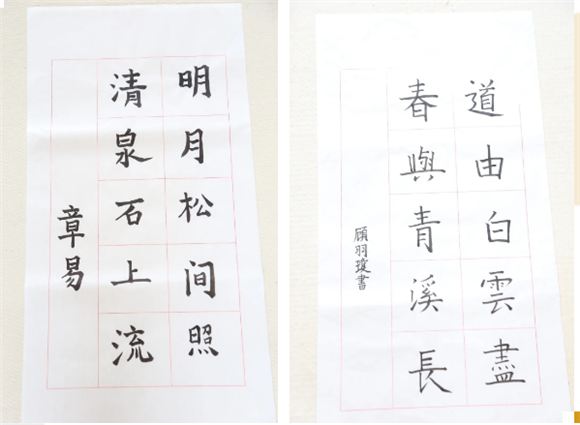 明月松间照
清泉石上流
章易
道由白雲盡
春與青溪長
顾羽瓊書